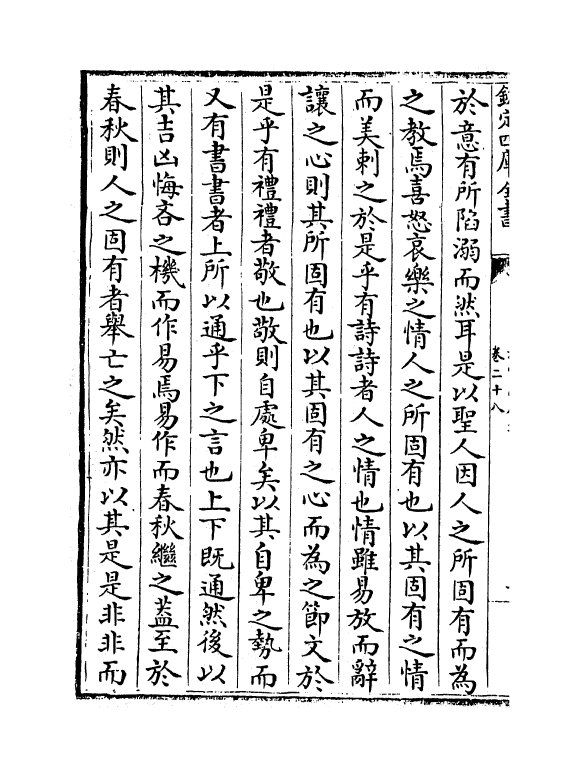 欽定四庫全書
卷二十八
於意有所陷溺而然耳是以聖人因人之所固有而為
之教焉喜怒哀樂之情人之所固有也以其固有之情
而美刺之於是乎有詩詩者人之情也情雖易放而辭
讓之心則其所固有也以其固有之心而為之節文於
是乎有禮禮者敬也敬則自處卑矣以其自卑之勢而
又有書書者上所以通乎下之言也上下既通然後以
其吉凶悔吝之機而作易焉易作而春秋繼之蓋至於
春秋則人之固有者舉亡之矣然亦以其是是非非而